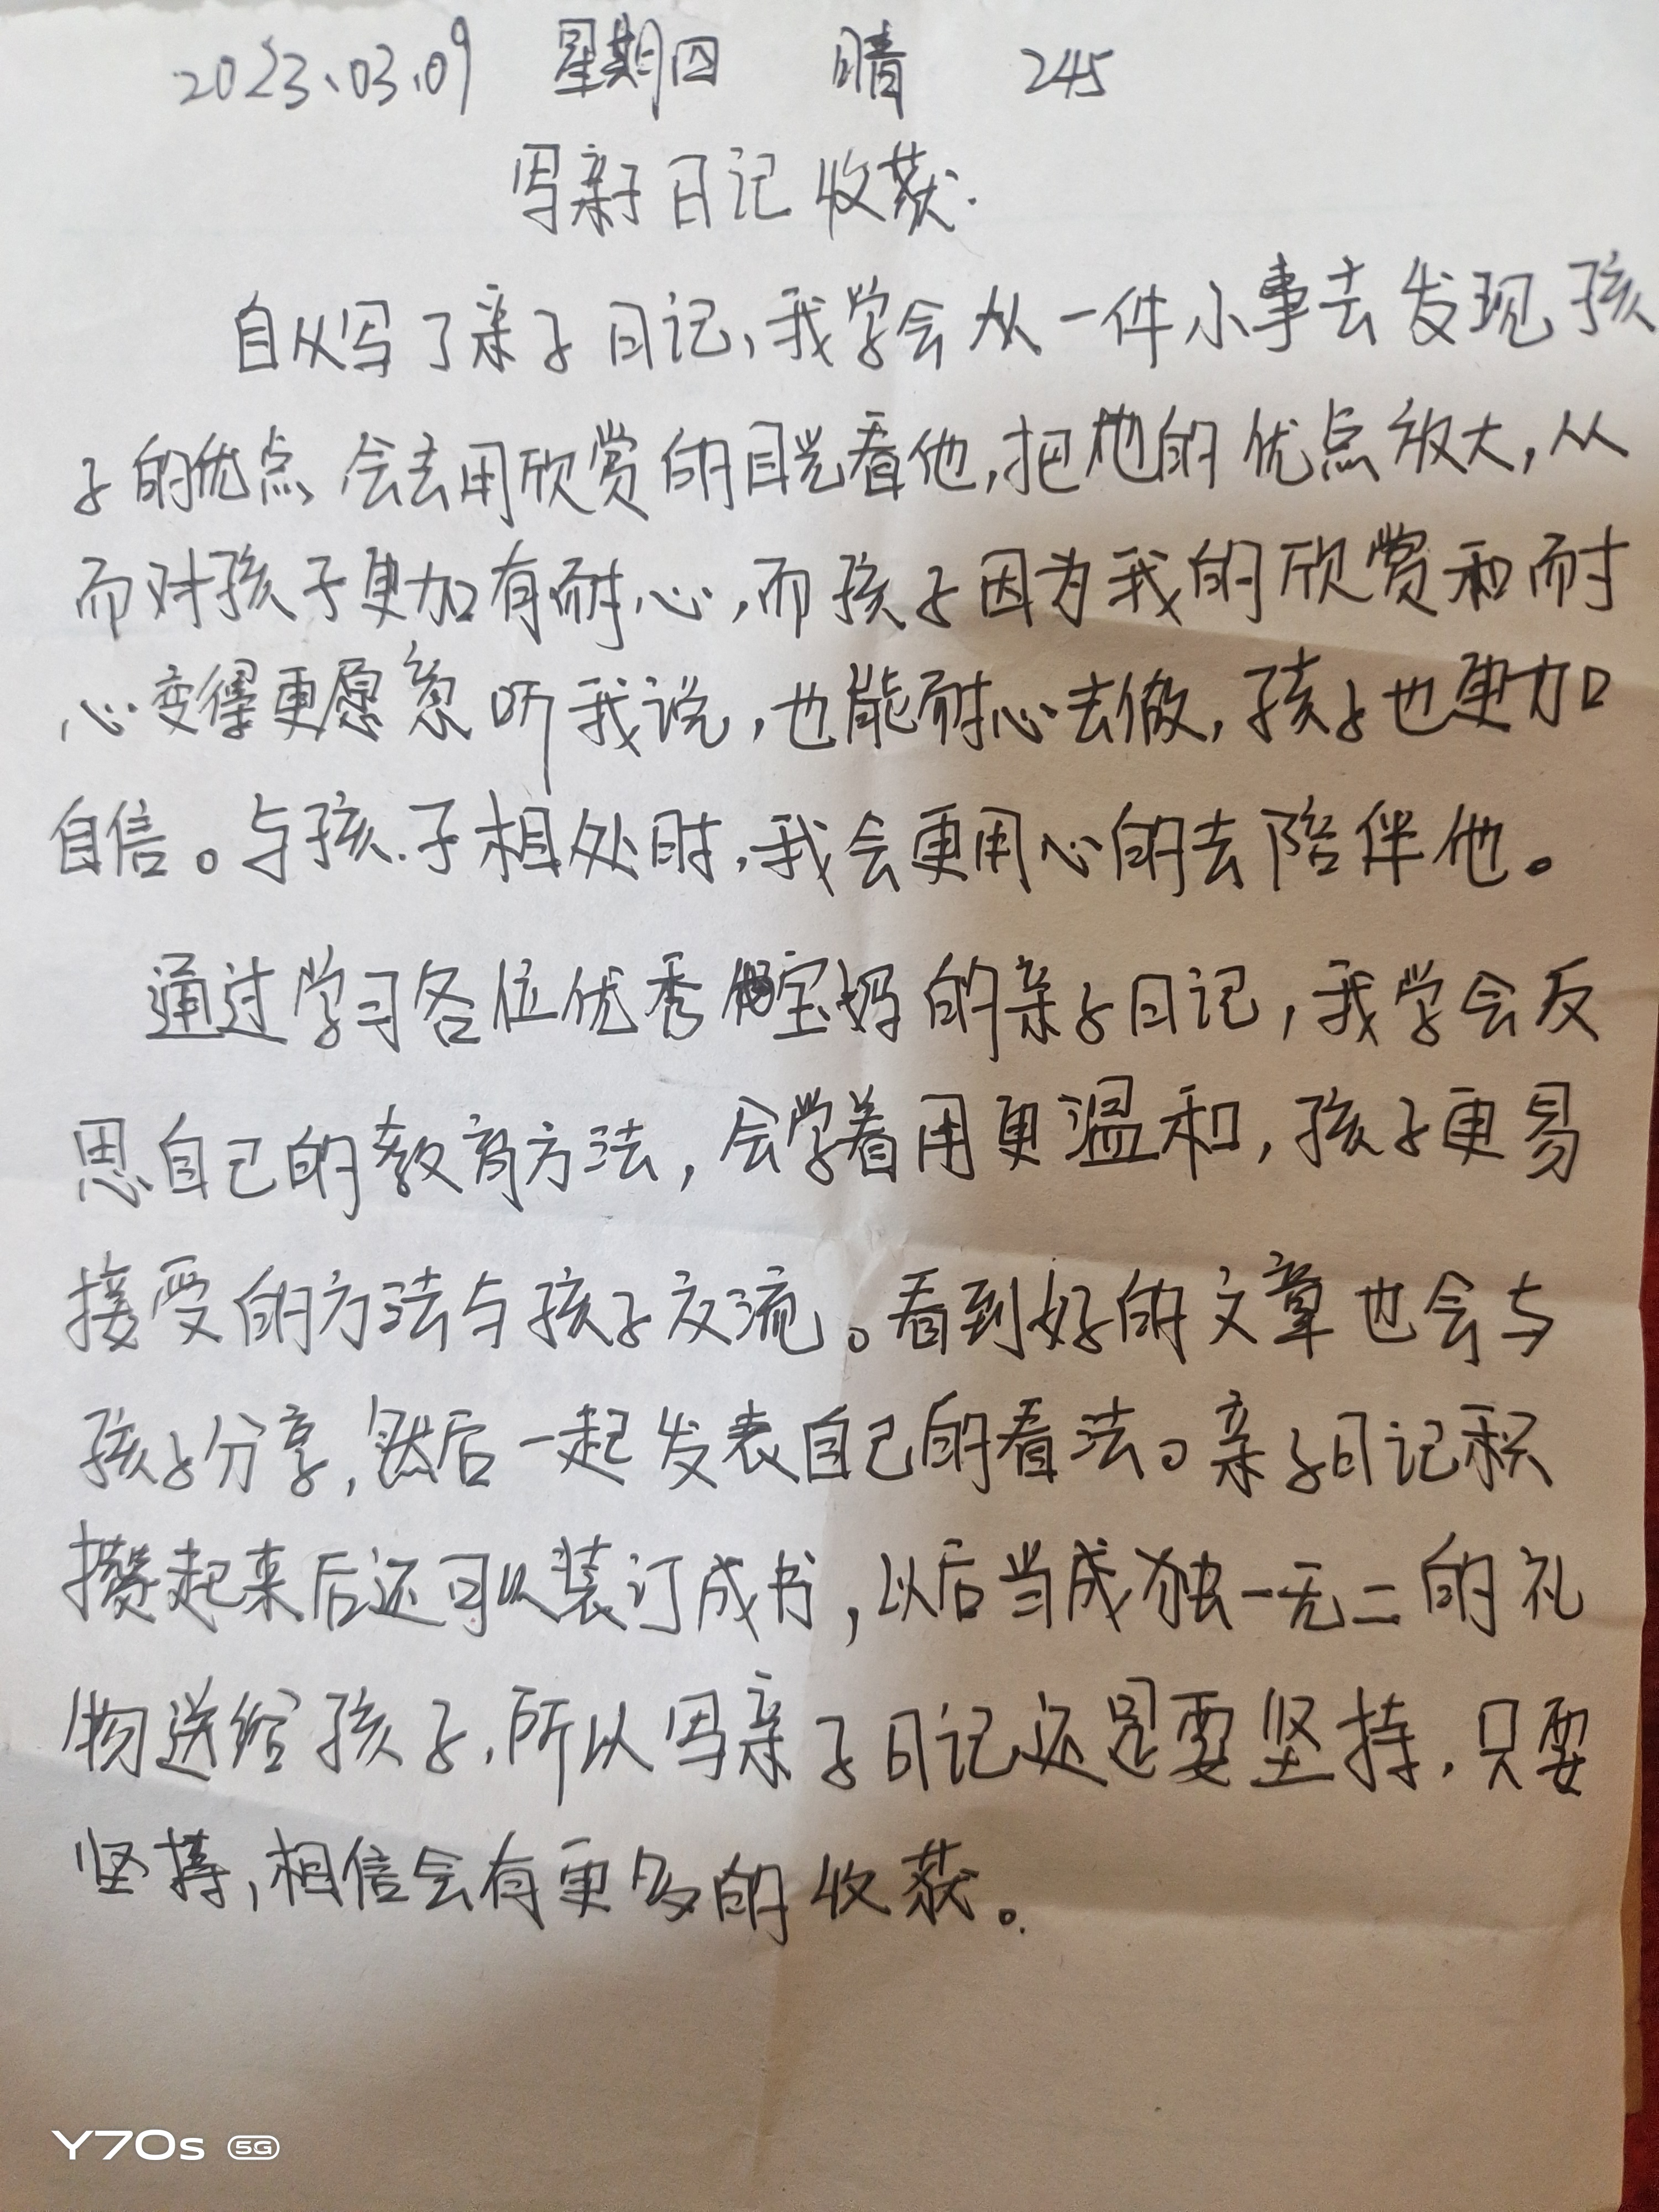 2023.03.09 星期四 晴 245
写亲子日记收获.
自从写了亲子日记,我学会从一件小事去发现孩
子的优点 会去用欣赏的目光看他,把他的优点放大,从
而对孩子更加有耐心,而孩子因为我的欣赏和耐
心变得更愿意听我说,也能耐心去做,孩子也更加
自信。与孩子相处时,我会更用心的去陪伴他。
通过学习各位优秀宝妈的亲子日记,我学会反
思自己的教育方法,会学着用更温和,孩子更易
接受的方法与孩子交流。看到好的文章也会与
孩子分享,然后一起发表自己的看法。亲子日记积
攒起来后还可以装订成书,以后当成独一无二的礼
物送给孩子,所以写亲子日记还是要坚持,只要
坚持,相信会有更多的收获。
Y70s 5G